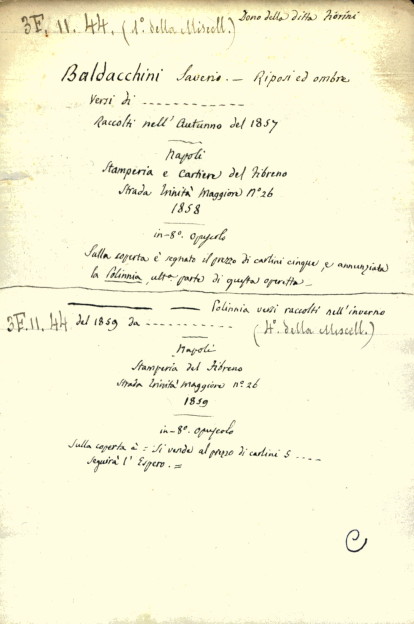 Dono della ditta Fiorini
3F. 11. 44. (1º della Miscell.)
Baldacchini Saverio. — Riposi ed ombre
Versi di - - - - - - - - - - -
Raccolti nell'Autunno del 1857
Napoli
Stamperia e Cartiere del Fibreno
Strada Trinità Maggiore Nº 26
1858
in-8º. Opuscolo
Sulla coperta è segnato il prezzo di carlini cinque, e annunziata
la Polinnia, altra parte di questa operetta —
Polinnia versi raccolti nell'inverno
3F. 11. 44 del 1859 da - - - - - - - - - (4º della Miscell.)
Napoli
Stamperia del Fibreno
Strada Trinità Maggiore nº 26
1859
in-8º. Opuscolo
Sulla coperta è = Si vende al prezzo di carlini 5 - - - -
Seguirà l'Espero. =